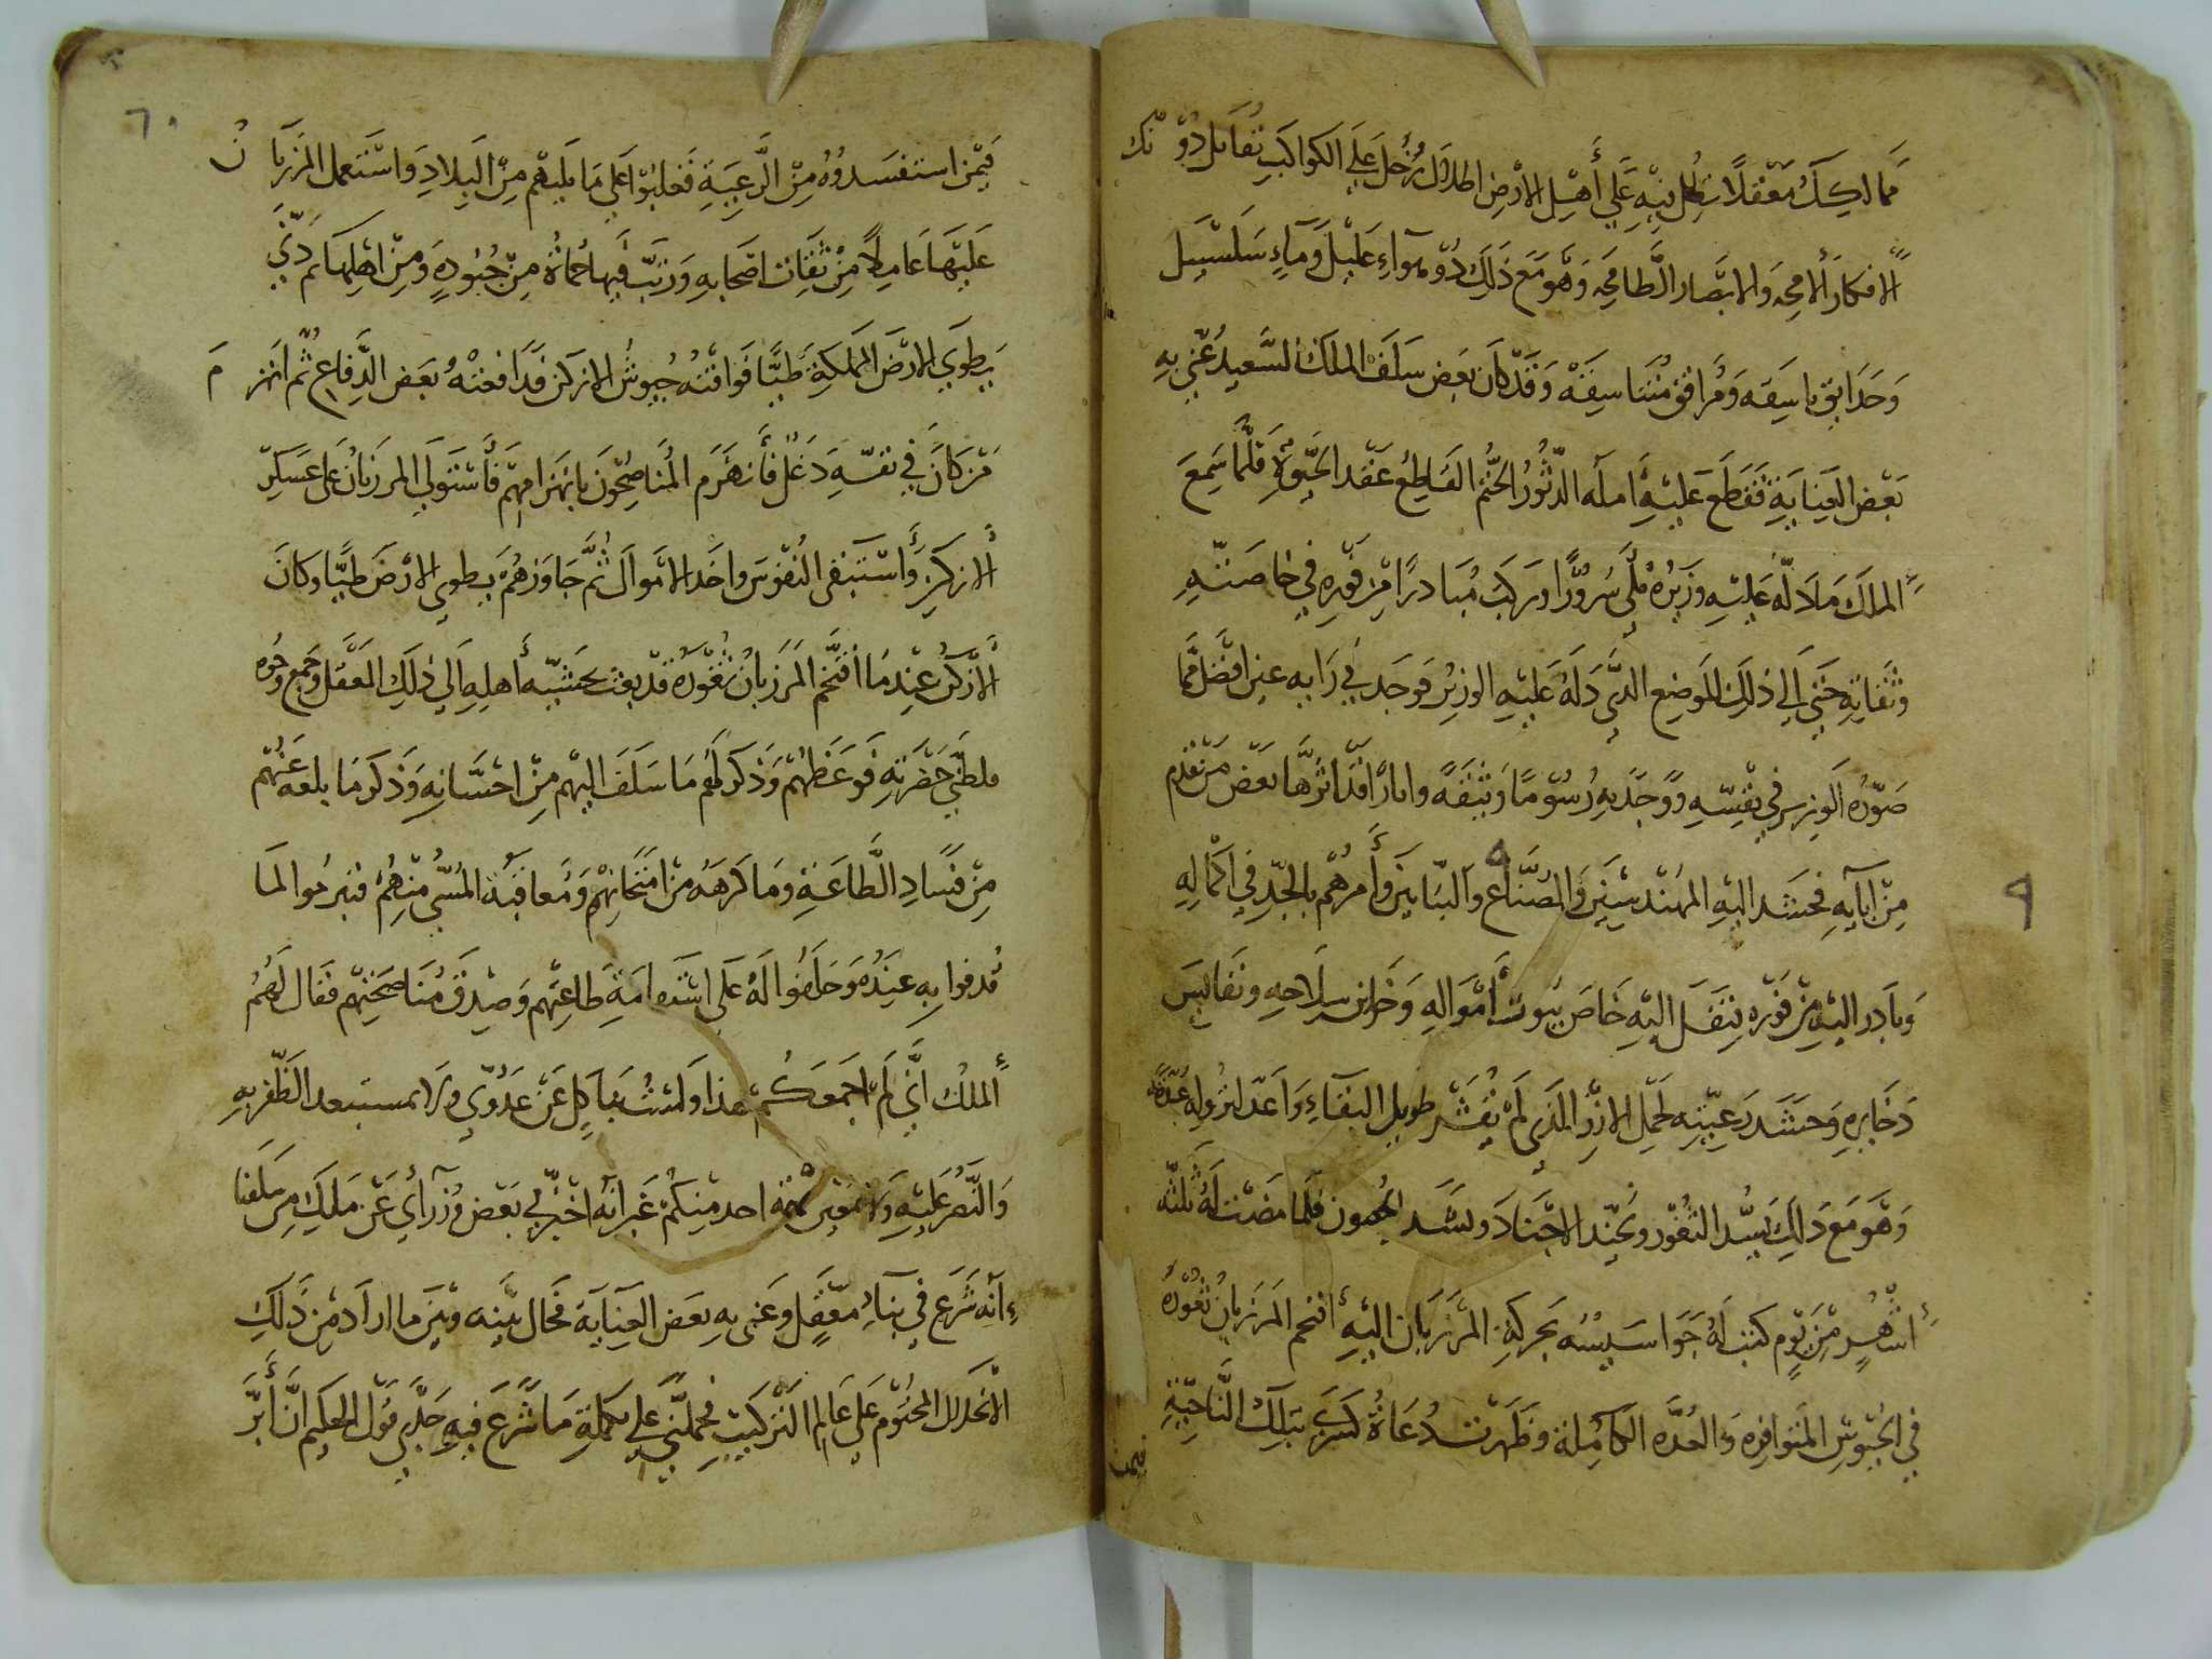 ممالكك معقلا يطل منه علي أهل الارض اطلال زحل علي الكواكب تقابل دونك
الافكار الامحه والابصار الطامحه وهو مع ذلك ذو هوآء عليل ومآء سلسبيل
وحدايق باسقه ومرافق متناسقه وقد كان بعض سلف الملك السعيد عني به
بعض العناية فقطع عليه امله الدثور الحتم القاطع عقد الحيوة فلما سمع
الملك ما دله عليه وزيره ملي سرورا وركب مبادرا من فوره في خاصته
وثقاته حتي الي ذلك الموضع الذي دله عليه الوزير فوجد في رايه عين افضل مما
صوره الوزير في نفسه ووجد به رسوما وثيقه واثارا قد اثرها بعض من تقدم
من ابايه فحشد اليه المهندسين والصناع والبنايين وأمرهم بالجد في اكماله
وبادر اليه من فوره بنقل اليه خاص بيوت أمواله وخزاين سلاحه ونفايس
دخايره وحشد رعيته لحمل الارز الذي لم يقشر طويل البقاء واعد لنزوله عدة
وهو مع ذلك يسد الثغور ويجند الاجناد ويشد الحصون فلما مضت له ثلثه
أشهر من يوم كتب له جواسيسه بحركة المرزبان اليه أقتحم المرزبان ثغوره
في الجيوش المتوافره والعده الكاملة وظهرت دعاة كسري بتلك الناحية
فيمن
٩
٦٠
فيمن استفسدوه من الرعية فغلبوا علي ما يليهم من البلاد واستعمل المرزبان
عليها عاملا من ثقات اصحابه ورتب فيها حماة من جنوده ومن اهلها ثم دني
يطوي الارض المملكة طيا فوافته جيوش الازكن فدافعته بعض الدفاع ثم انهزم
من كان في نفسه دغل فأنهزم المناصحون بانهزامهم فأستولي المرزبان علي عسكر
الازكن وأستبقي النفوس واخد الاموال ثم جاوزهم يطوي الارض طيا وكان
الازكن عندما أقتحم المرزبان ثغوره قد بعث بحشيه أهله الي ذلك المعقل وجمع وجوه
حضرته فوعظهم وذكر لهم ما سلف اليهم من احسانه وذكر ما بلغه عنهم
من فساد الطاعة وما كرهه من امتحانهم ومعاقبة المسي منهم فتبرموا لما
قدفوا به عنده وحلفوا له علي استدامة طاعتهم وصدق مناصحتهم فقال لهم
الملك اني لم اجمعكم لهذا ولست بناكل عن عدوي ولا مستبعد الظفر به
والنصر عليه احد منكم غير انه اخبرني بعض وزرآئي عن ملك من سلفنا
أنه شرع في بنآء معقل وعني به بعض العناية فحال بينه وبين ما اراد من ذلك
الانحلال المحتوم علي عالم التركيب فحملني علي تكملة ما شرع فيه جدي قول الحكيم ان أبر